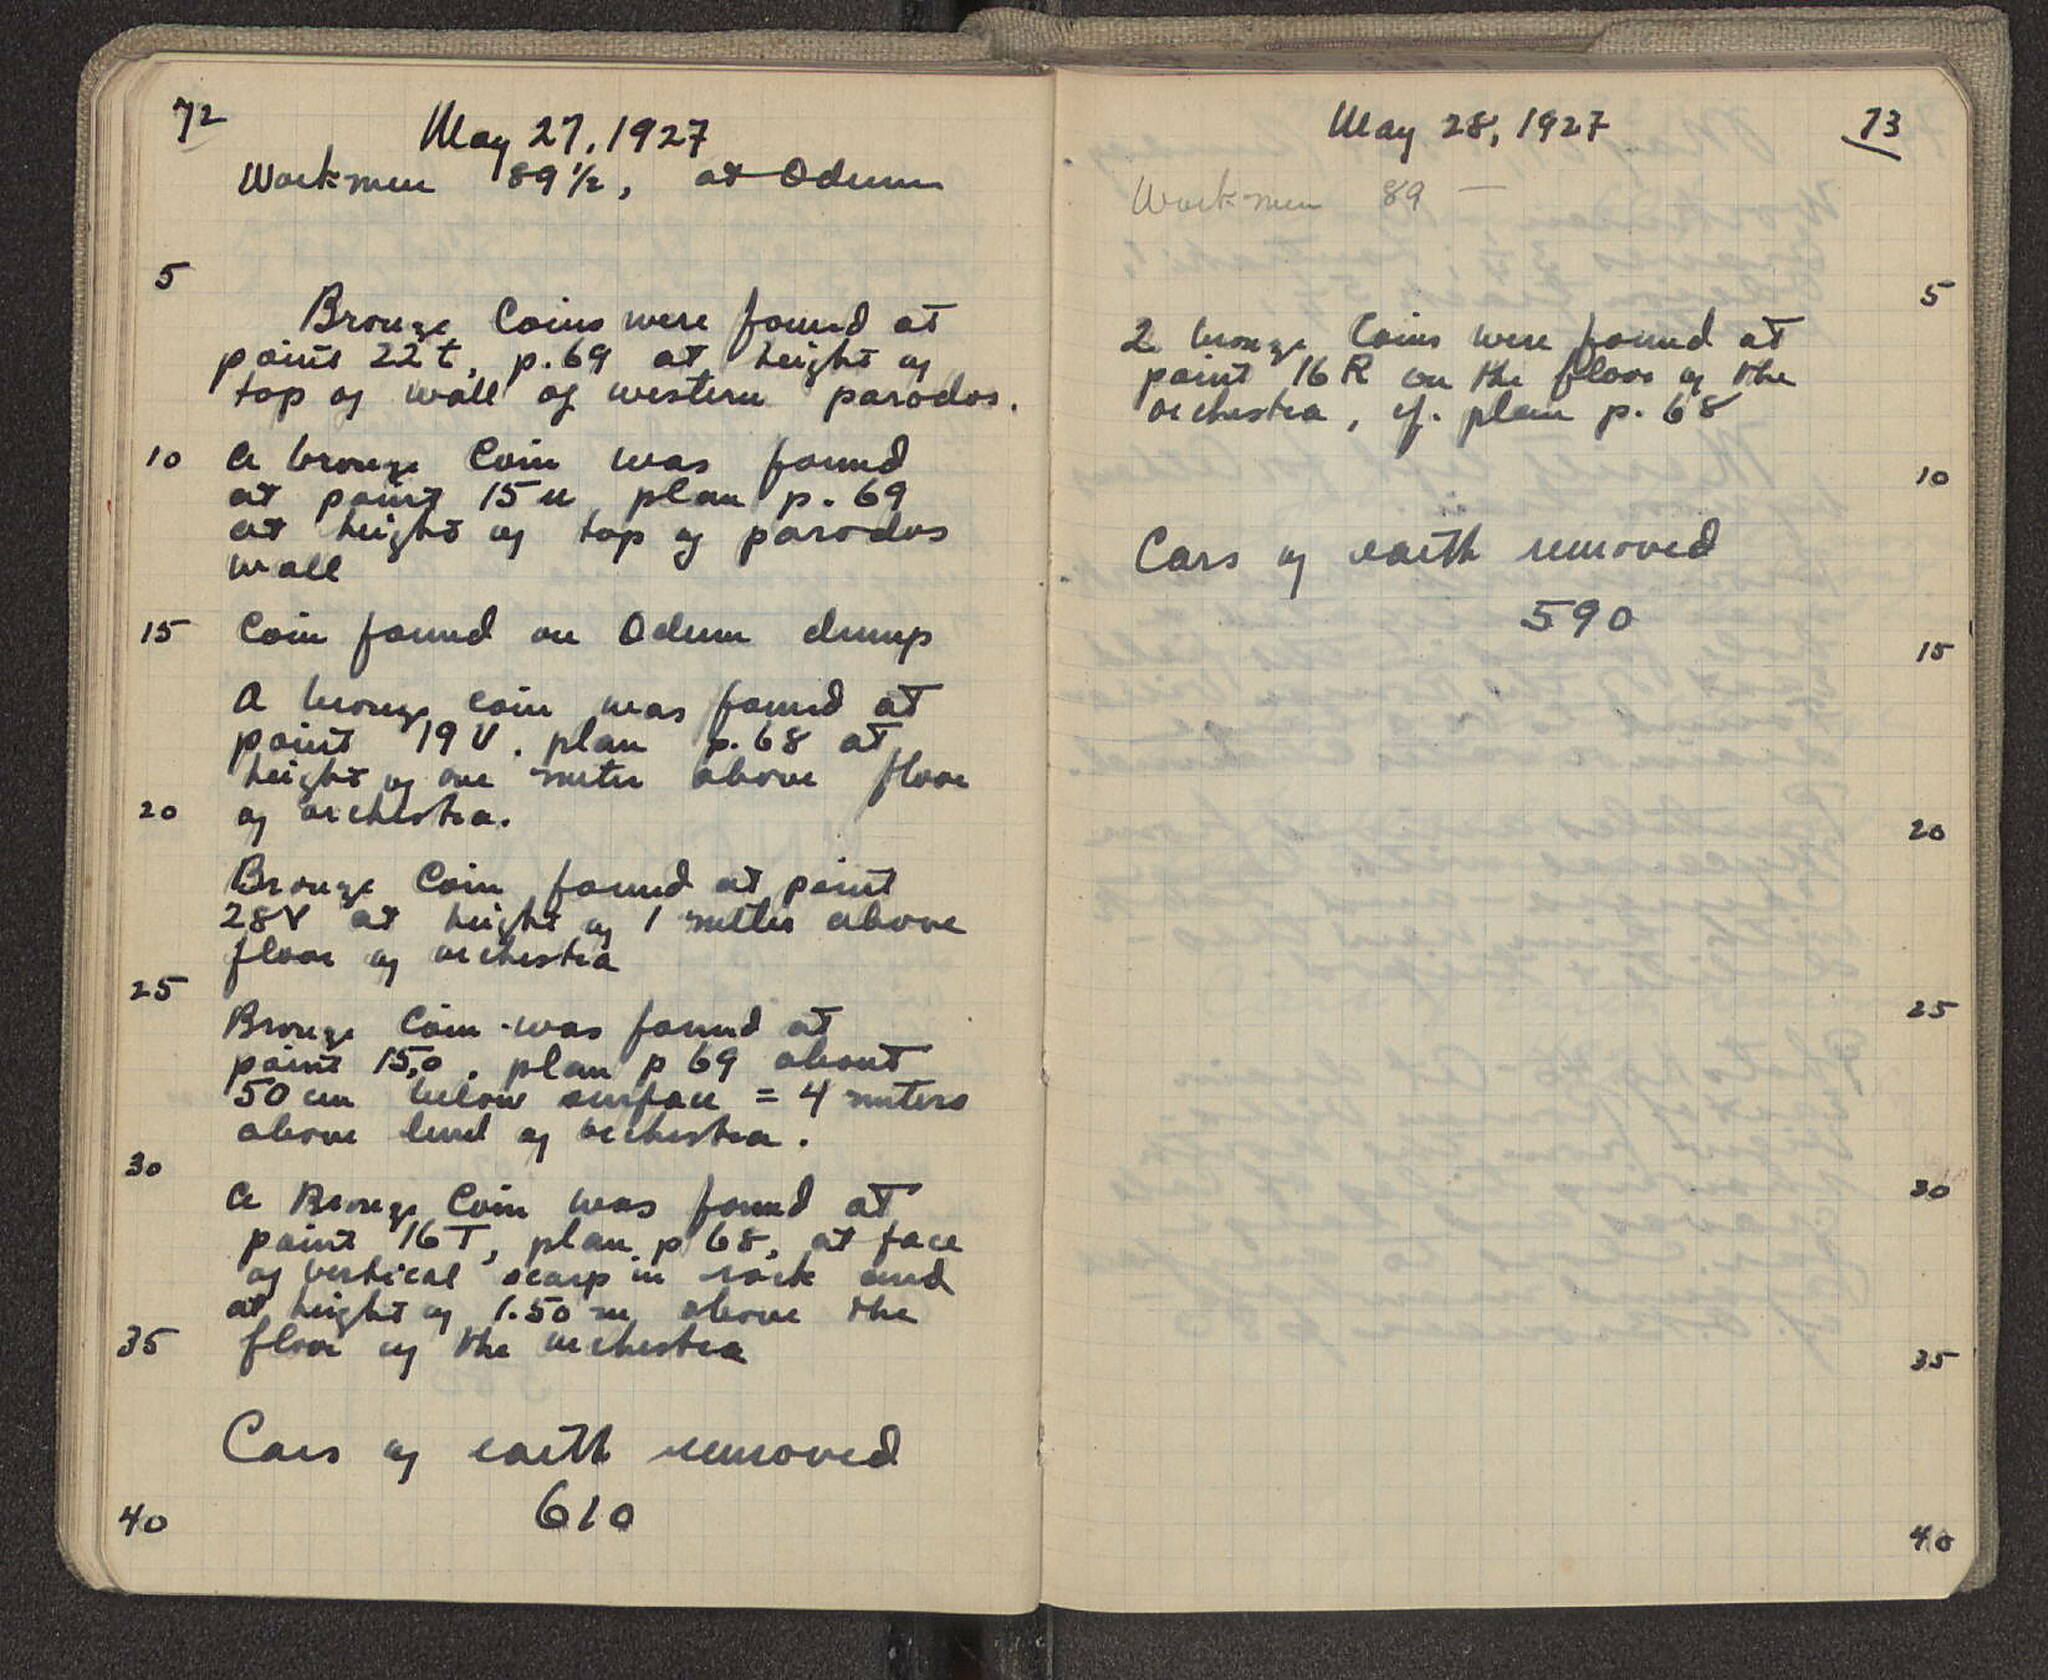 72
May 27, 1927
Workmen 89 1/2, at Odeum
5
Bronze Coins were found at
point 22 t, p. 69 at height of
top of wall of western parodos.
10 A bronze Coin was found
at point 15 u plan p. 69
at height of top of parodos
wall
15 Coin found on Odeum dump
A bronze coin was found at
point 19 V. plan p. 68 at
height of one meter above floor
20 of orchestra.
Bronze Coin found at point
28V at height of 1 meter above
floor of orchestra
25
Bronze Coin was found at
point 15,0. plan p 69 about
50 cm below surface = 4 meters
above level of orchestra.
30
A Bronze Coin was found at
point 16 T, plan p 68, at face
of vertical scarp in rock and
at height of 1.50 m above the
35 floor of the orchestra
Cars of earth removed
40 610
May 28, 1927 73
Workmen 89 —
5
2 bronze Coins were found at
point 16 R on the floor of the
orchestra, cf. plan p. 68
10
Cars of earth removed
590
15
20
25
30
35
40